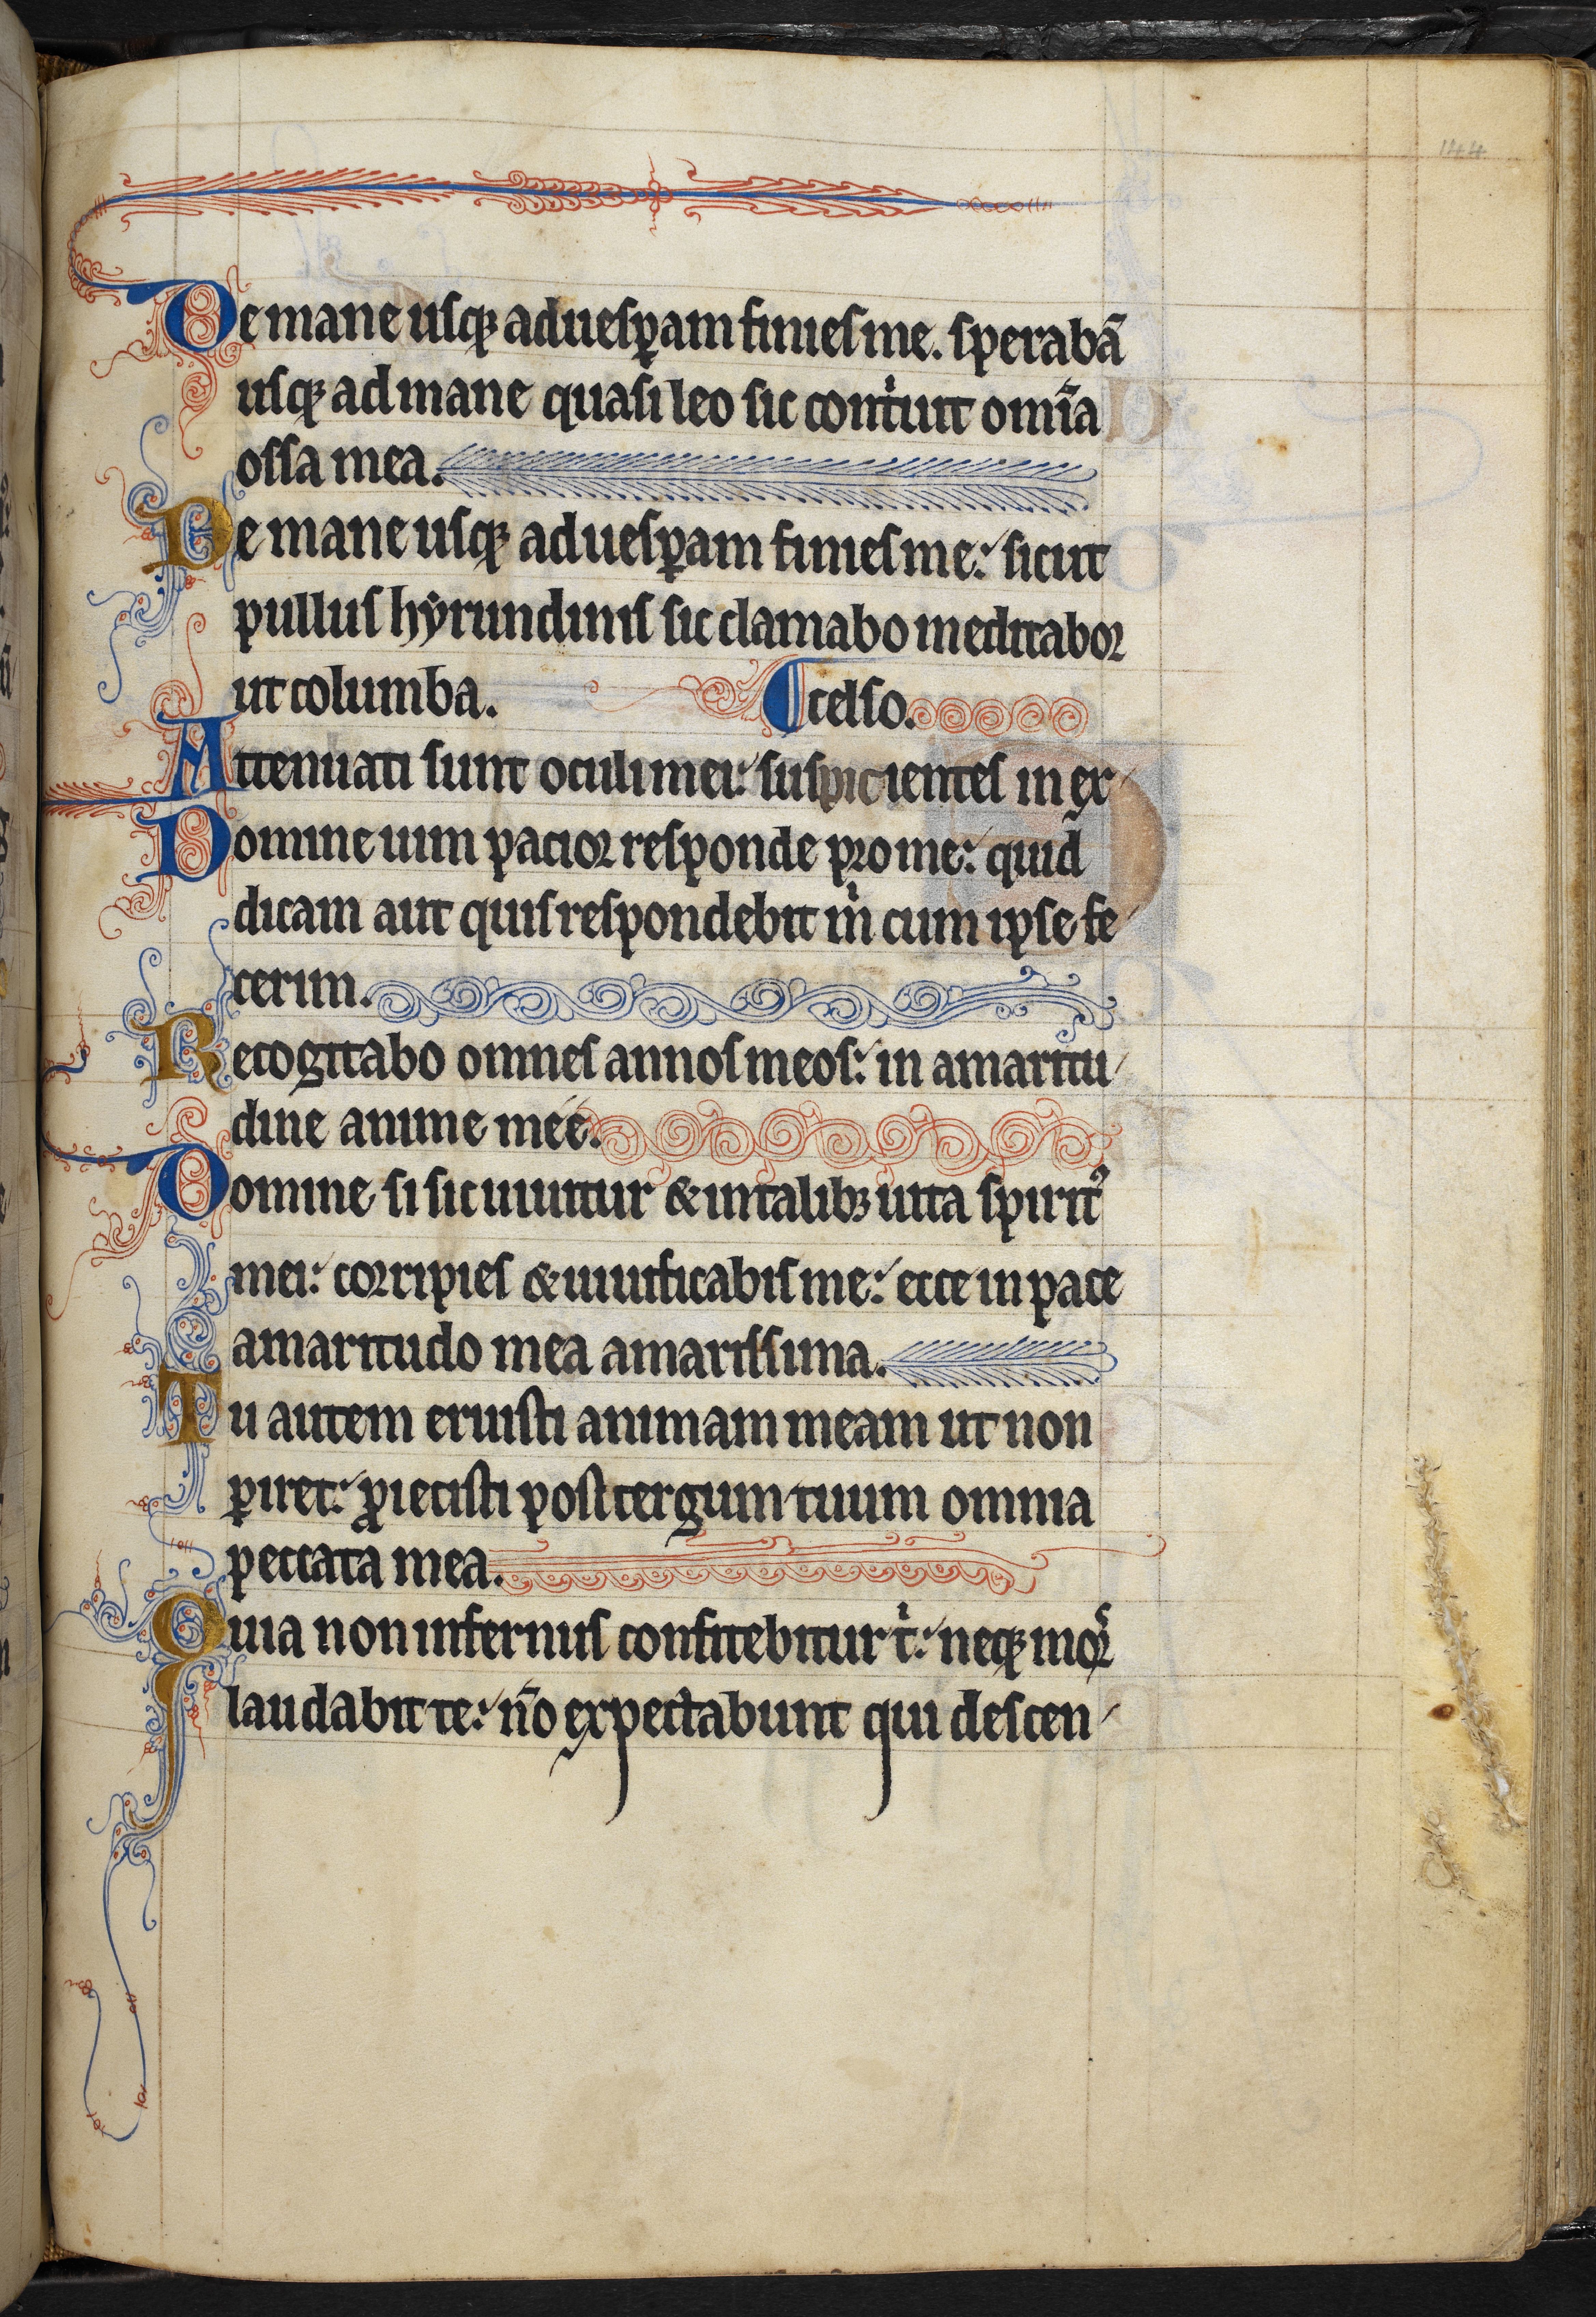 144
De mane usq; ad uesp̱am finies me. sperabā
usq; ad mane quasi leo sic contͥuit om̄ia
ossa mea.
De mane usq; ad uesp̱am finies me: sicut
pullus hẏrundinis sic clamabo meditabor
ut columba. celso.
Attenuati sunt oculi mei: suspicientes in ex
Domine uim pacior responde pro me: quid
dicam aut quis respondebit mͥ cum ipse fe
cerim.
Recogitabo omnes annos meos: in amaritu
dine anime meé.
Domine si sic uiuitur & in talib; uita spiritꝰ
mei: corripies & uiuificabis me: ecce in pace
amaritudo mea amarissima.
Tu autem eruisti animam meam ut non
ꝑiret: ꝓiecisti post tergum tuum omnia
peccata mea.
Quia non infernus confitebitur tͥ: neq; morˢ
laudabit te: nō expectabunt qui descen